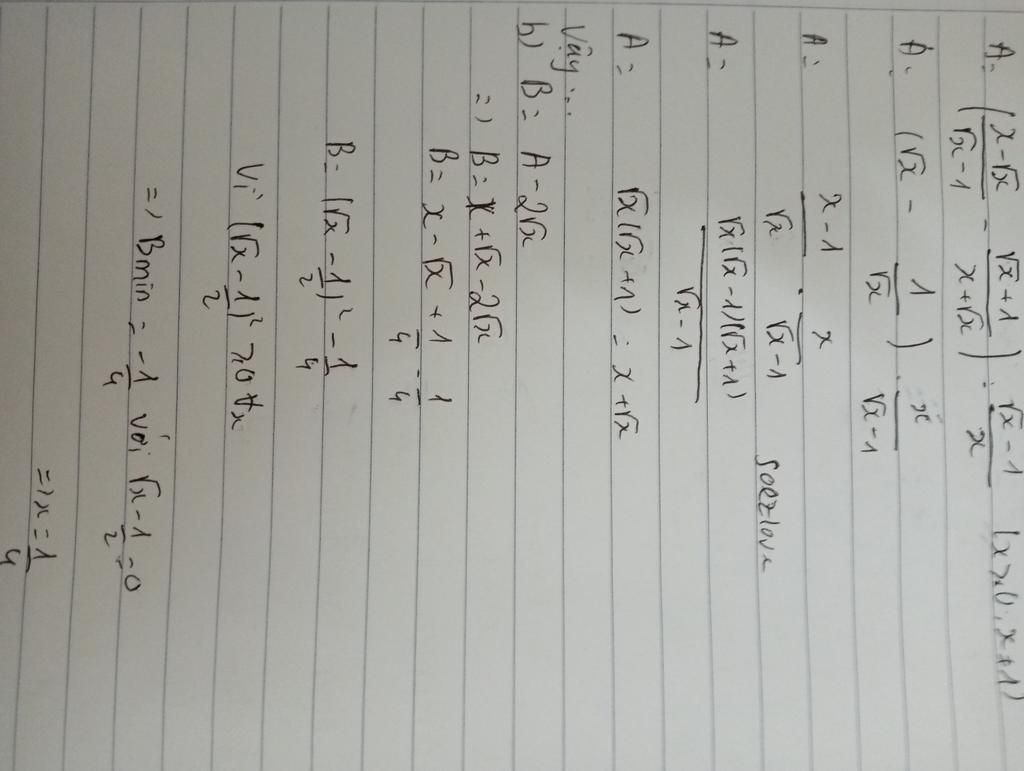 A = (x-√x/√x-1 - √x+1/x+√x) : √x-1/x (x>0; x≠1)
A = (√x - 1/√x) . x/√x-1
A = x-1/√x . x/√x-1
A = √x(√x-1)(√x+1)/√x-1
A = √x(√x+1) = x+√x
Vậy...
b) B = A - 2√x
=> B = x+√x-2√x
B = x-√x+1/4-1/4
B = (√x-1/2)²-1/4
Vì (√x-1/2)² ≥ 0 ∀x
=> Bmin = -1/4 với √x-1/2=0
=> x=1/4